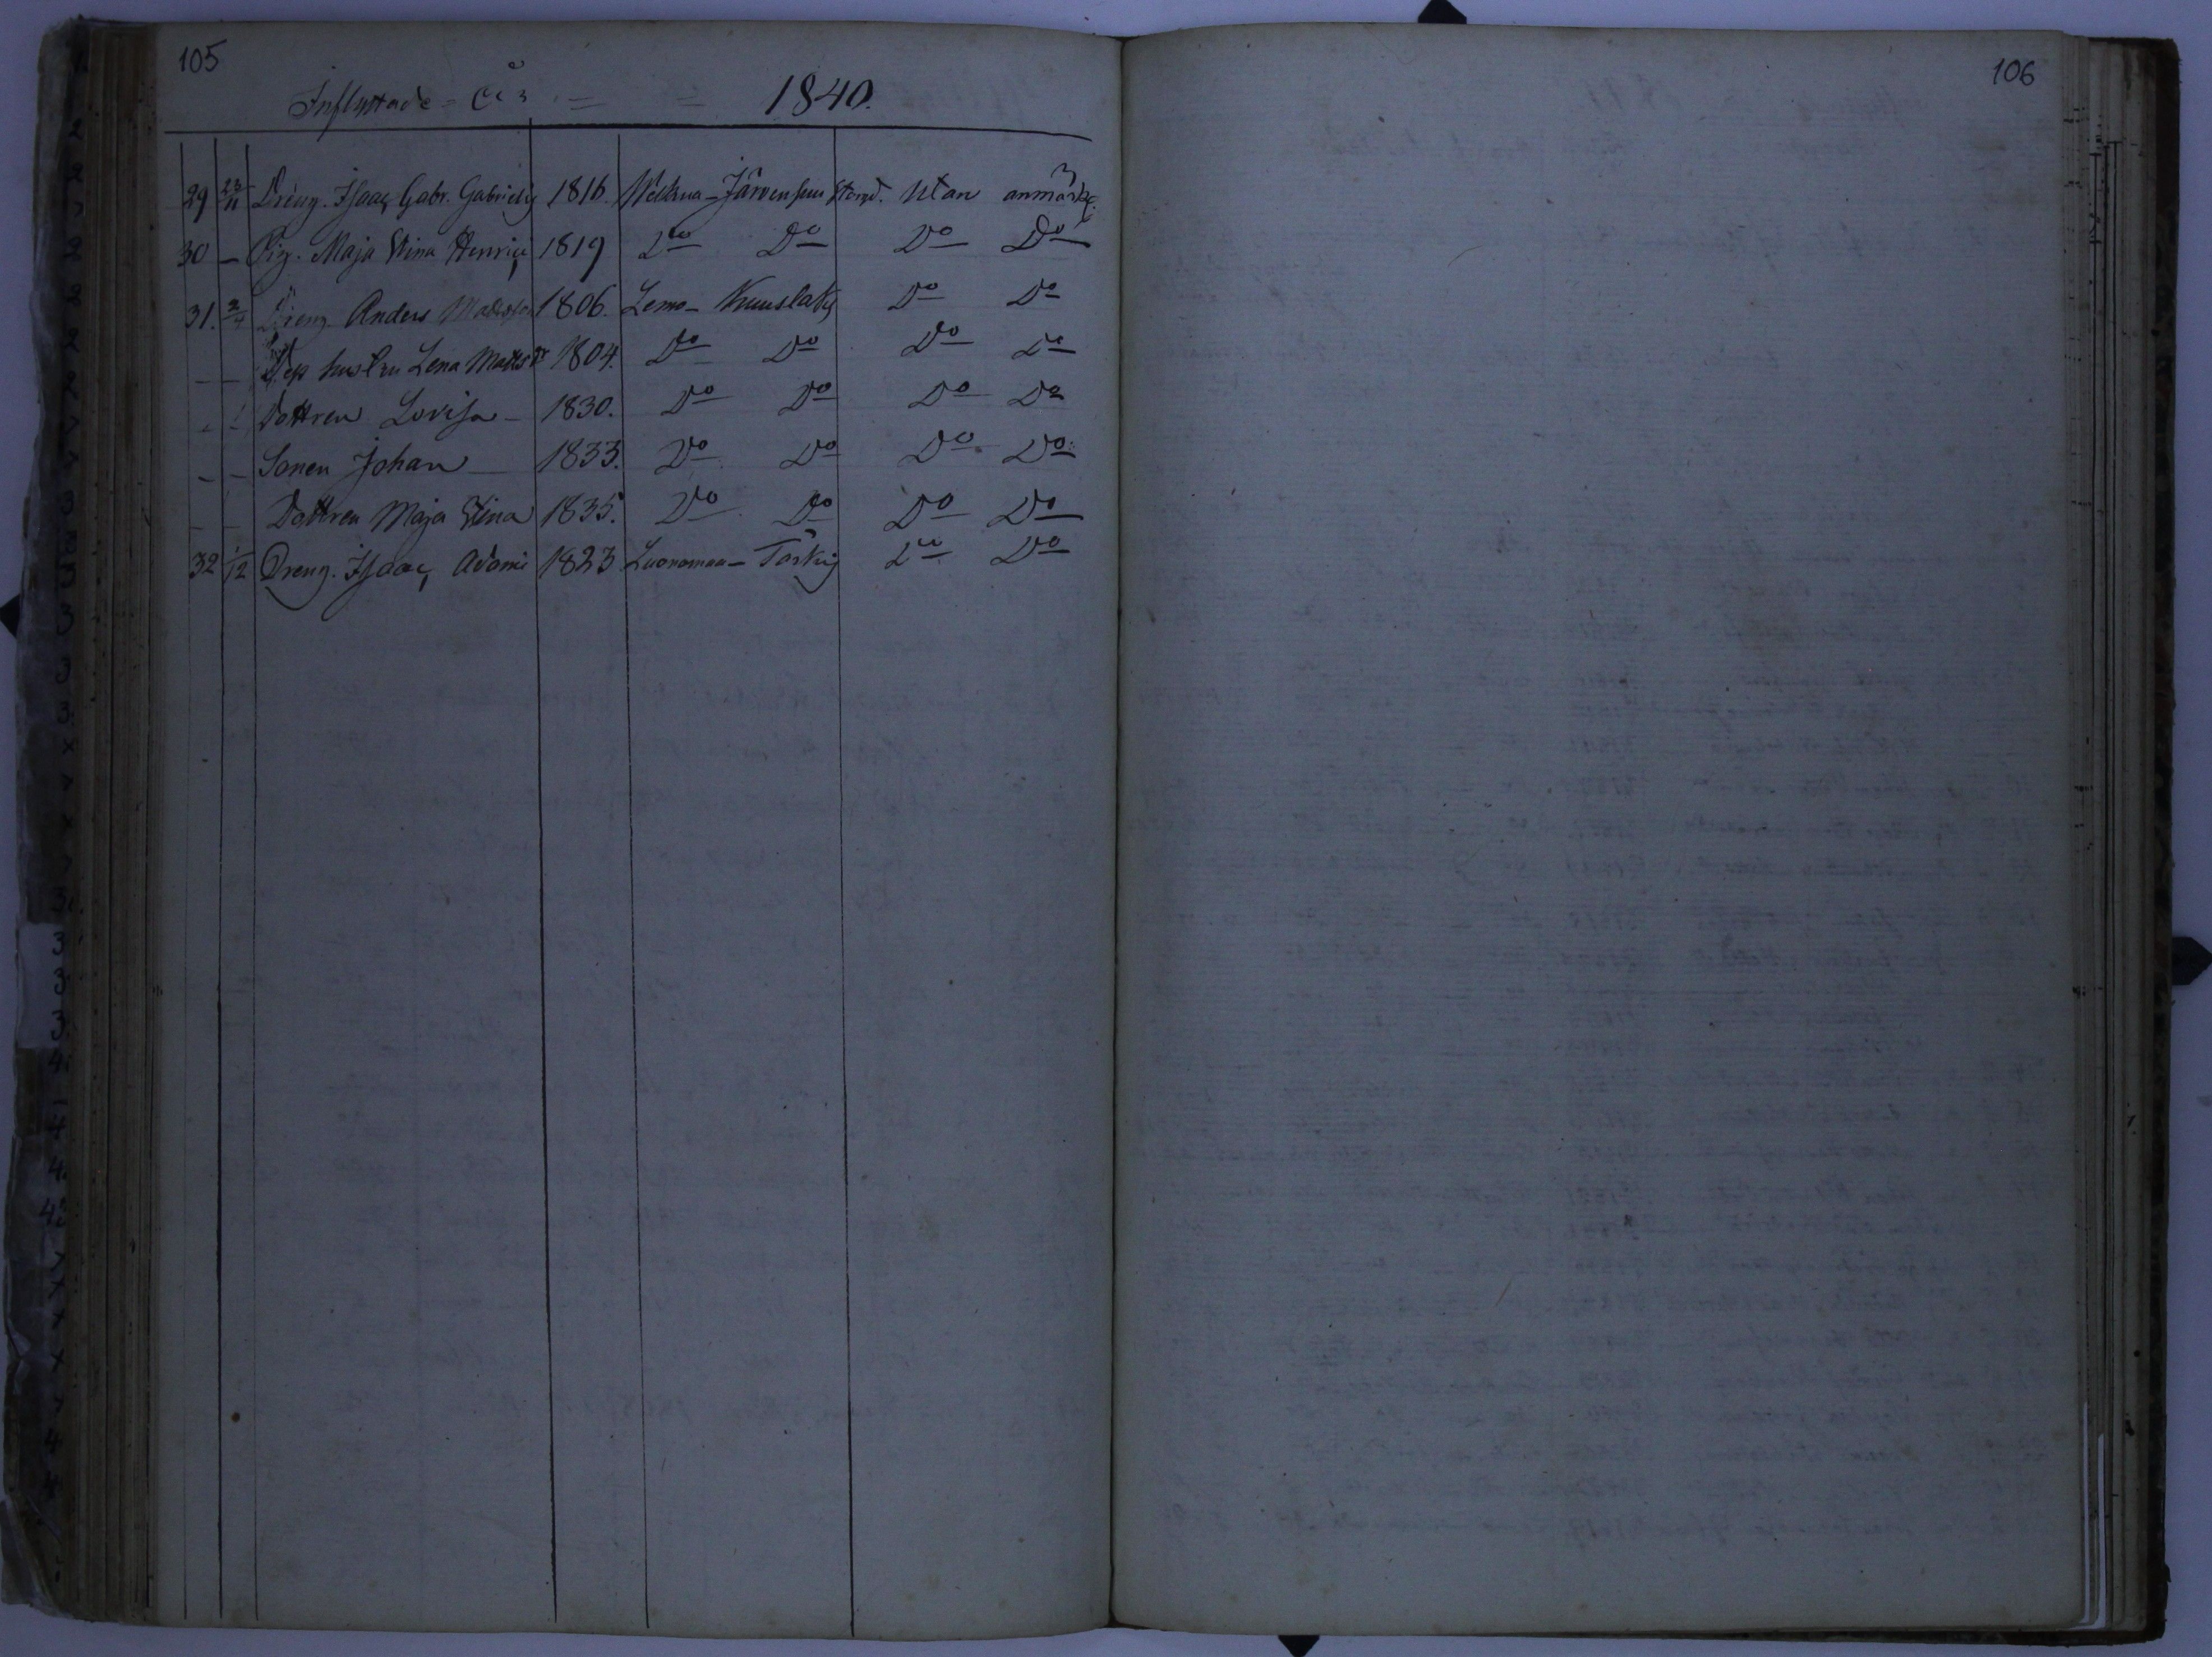 105
Inflyttade = År = = 1840.
29 23/11 Dreng. Isaac Gabr. Gabrielis 1816. Welkua - Järvensuu utan anmärkg.
30 — Pig. Maja Stina Henrici 1819 Do Do Do Do
31. 3/4 Dreng. Anders 1806. Lemo - Do Do
— — Dess hustru Lena Matts dr 1804. Do Do Do Do
Dottren Lovisa — 1830. Do Do Do Do
— — Sonen Johan — 1833. Do Do Do Do
— — Dottren Maja Stina 1835. Do Do Do Do
32 1/12 Dreng. Isaac Adami 1823 Luonomaa - Do Do
106